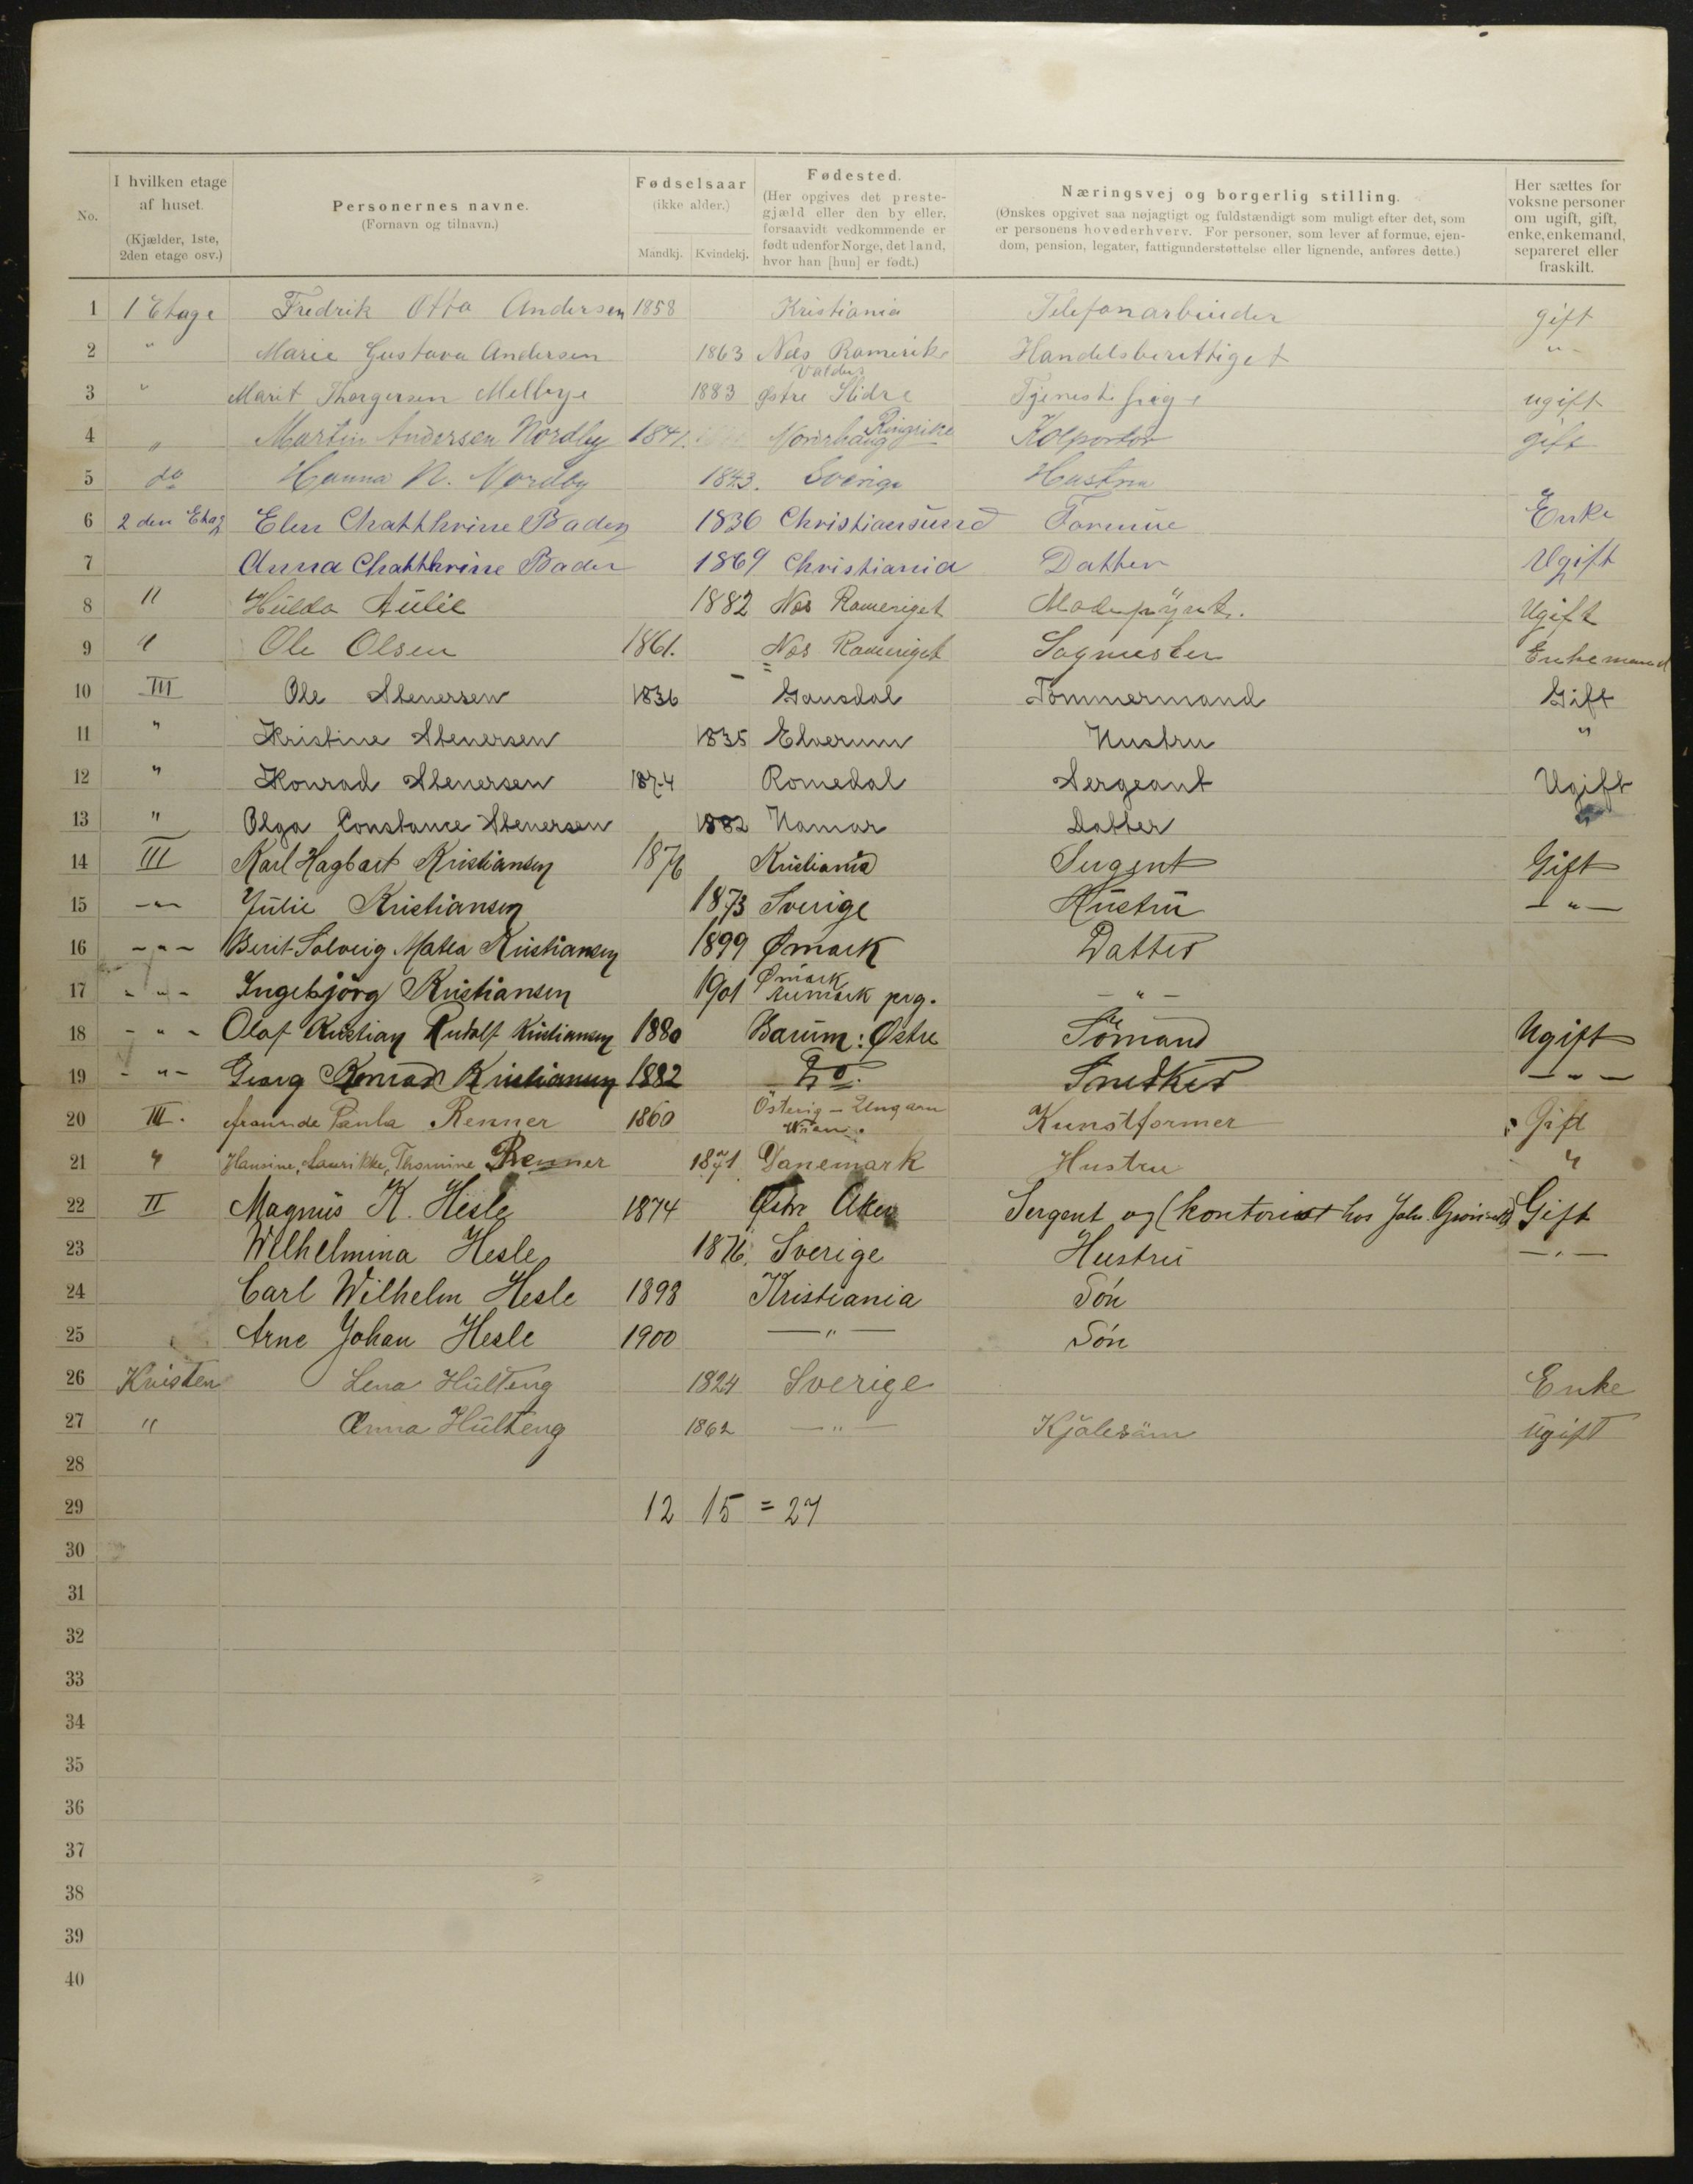 No.
I hvilken etage af huset. (Kjælder, 1ste, 2den etage osv.)
Personernes navne. (Fornavn og tilnavn.)
Fødselsaar (ikke alder.) Mandkj. Kvindekj.
Fødested. (Her opgives det prestegjæld eller den by eller, forsaavidt vedkommende er født udenfor Norge, det land, hvor han [hun] er født.)
Næringsvej og borgerlig stilling. (Ønskes opgivet saa nøjagtigt og fuldstændigt som muligt efter det, som er personens hovederhverv. For personer, som lever af formue, ejendom, pension, legater, fattigunderstøttelse eller lignende, anføres dette.)
Her sættes for voksne personer om ugift, gift, enke, enkemand, separeret eller fraskilt.
1 1 Etage Fredrik Otto Andersen 1858 Kristiania Telefonarbeider gift
2 " Marie Gustava Andersen 1863 Næs Romerike Handelsberettiget "
3 " Marit Thorgersen Melbye 1883 Østre Slidre Valders Tjenestepige ugift
4 " Martin Andersen Nordby 1841. Norderhaug Ringrike Kolportør gift
5 do Hanna N. Nordby 1843. Sverige Hustru
6 2 den Etag Elen Chatthrine Baden 1836 Christiansund Formue Enke
7 Anna Chatthrine Baden 1869 Christiania Datter Ugift
8 " Hulda Aulie 1882 Nes Romeriget Modepynt. Ugift
9 " Ole Olsen 1861. Nes Romeriget Sagmester Enkemand
10 III Ole Stenersen 1836 Gausdal Tømmermand Gift
11 " Kristine Stenersen 1835 Elverum Hustru "
12 " Konrad Stenersen 1874 Romedal Sergeant Ugift
13 " Olga Constance Stenersen 1882 Hamar Datter
14 III Karl Hagbart Kristiansen 1876 Kristiania Sergent Gift
15 -"- Julie Kristiansen 1873 Sverige Hustru - " -
16 -"- Berit Solveig Matea Kristiansen 1899 Ømark Datter
17 - " - Ingebjörg Kristiansen 1901 Ømark Aremark prg. - " -
18 - " - Olaf Kristian Rudolf Kristiansen 1880 Barum: Østre Sømand Ugift
19 - " - Georg Konrad Kristiansen 1882 Do. Snedker - " -
20 III. Paula Renner 1860 Østerig - Ungarn Wien. Kunstformer Gift
21 " Hansine, Laurikke, Thomine Renner 1871 Danemark Hustru "
22 II Magnus K. Hesle 1874 Østre Aker Sergent og (kontorist hos Joh. Gift
23 Wilhelmina Hesle 1876. Sverige Hustru - " -
24 Carl Wilhelm Hesle 1898 Kristiania Søn
25 Arne Johan Hesle 1900 - " - Søn
26 Kvisten Lena Hulteng 1824 Sverige Enke
27 " Anna Hulteng 1862 - " - Kjolesøm ugift
28
29 12 15 = 27
30
31
32
33
34
35
36
37
38
39
40